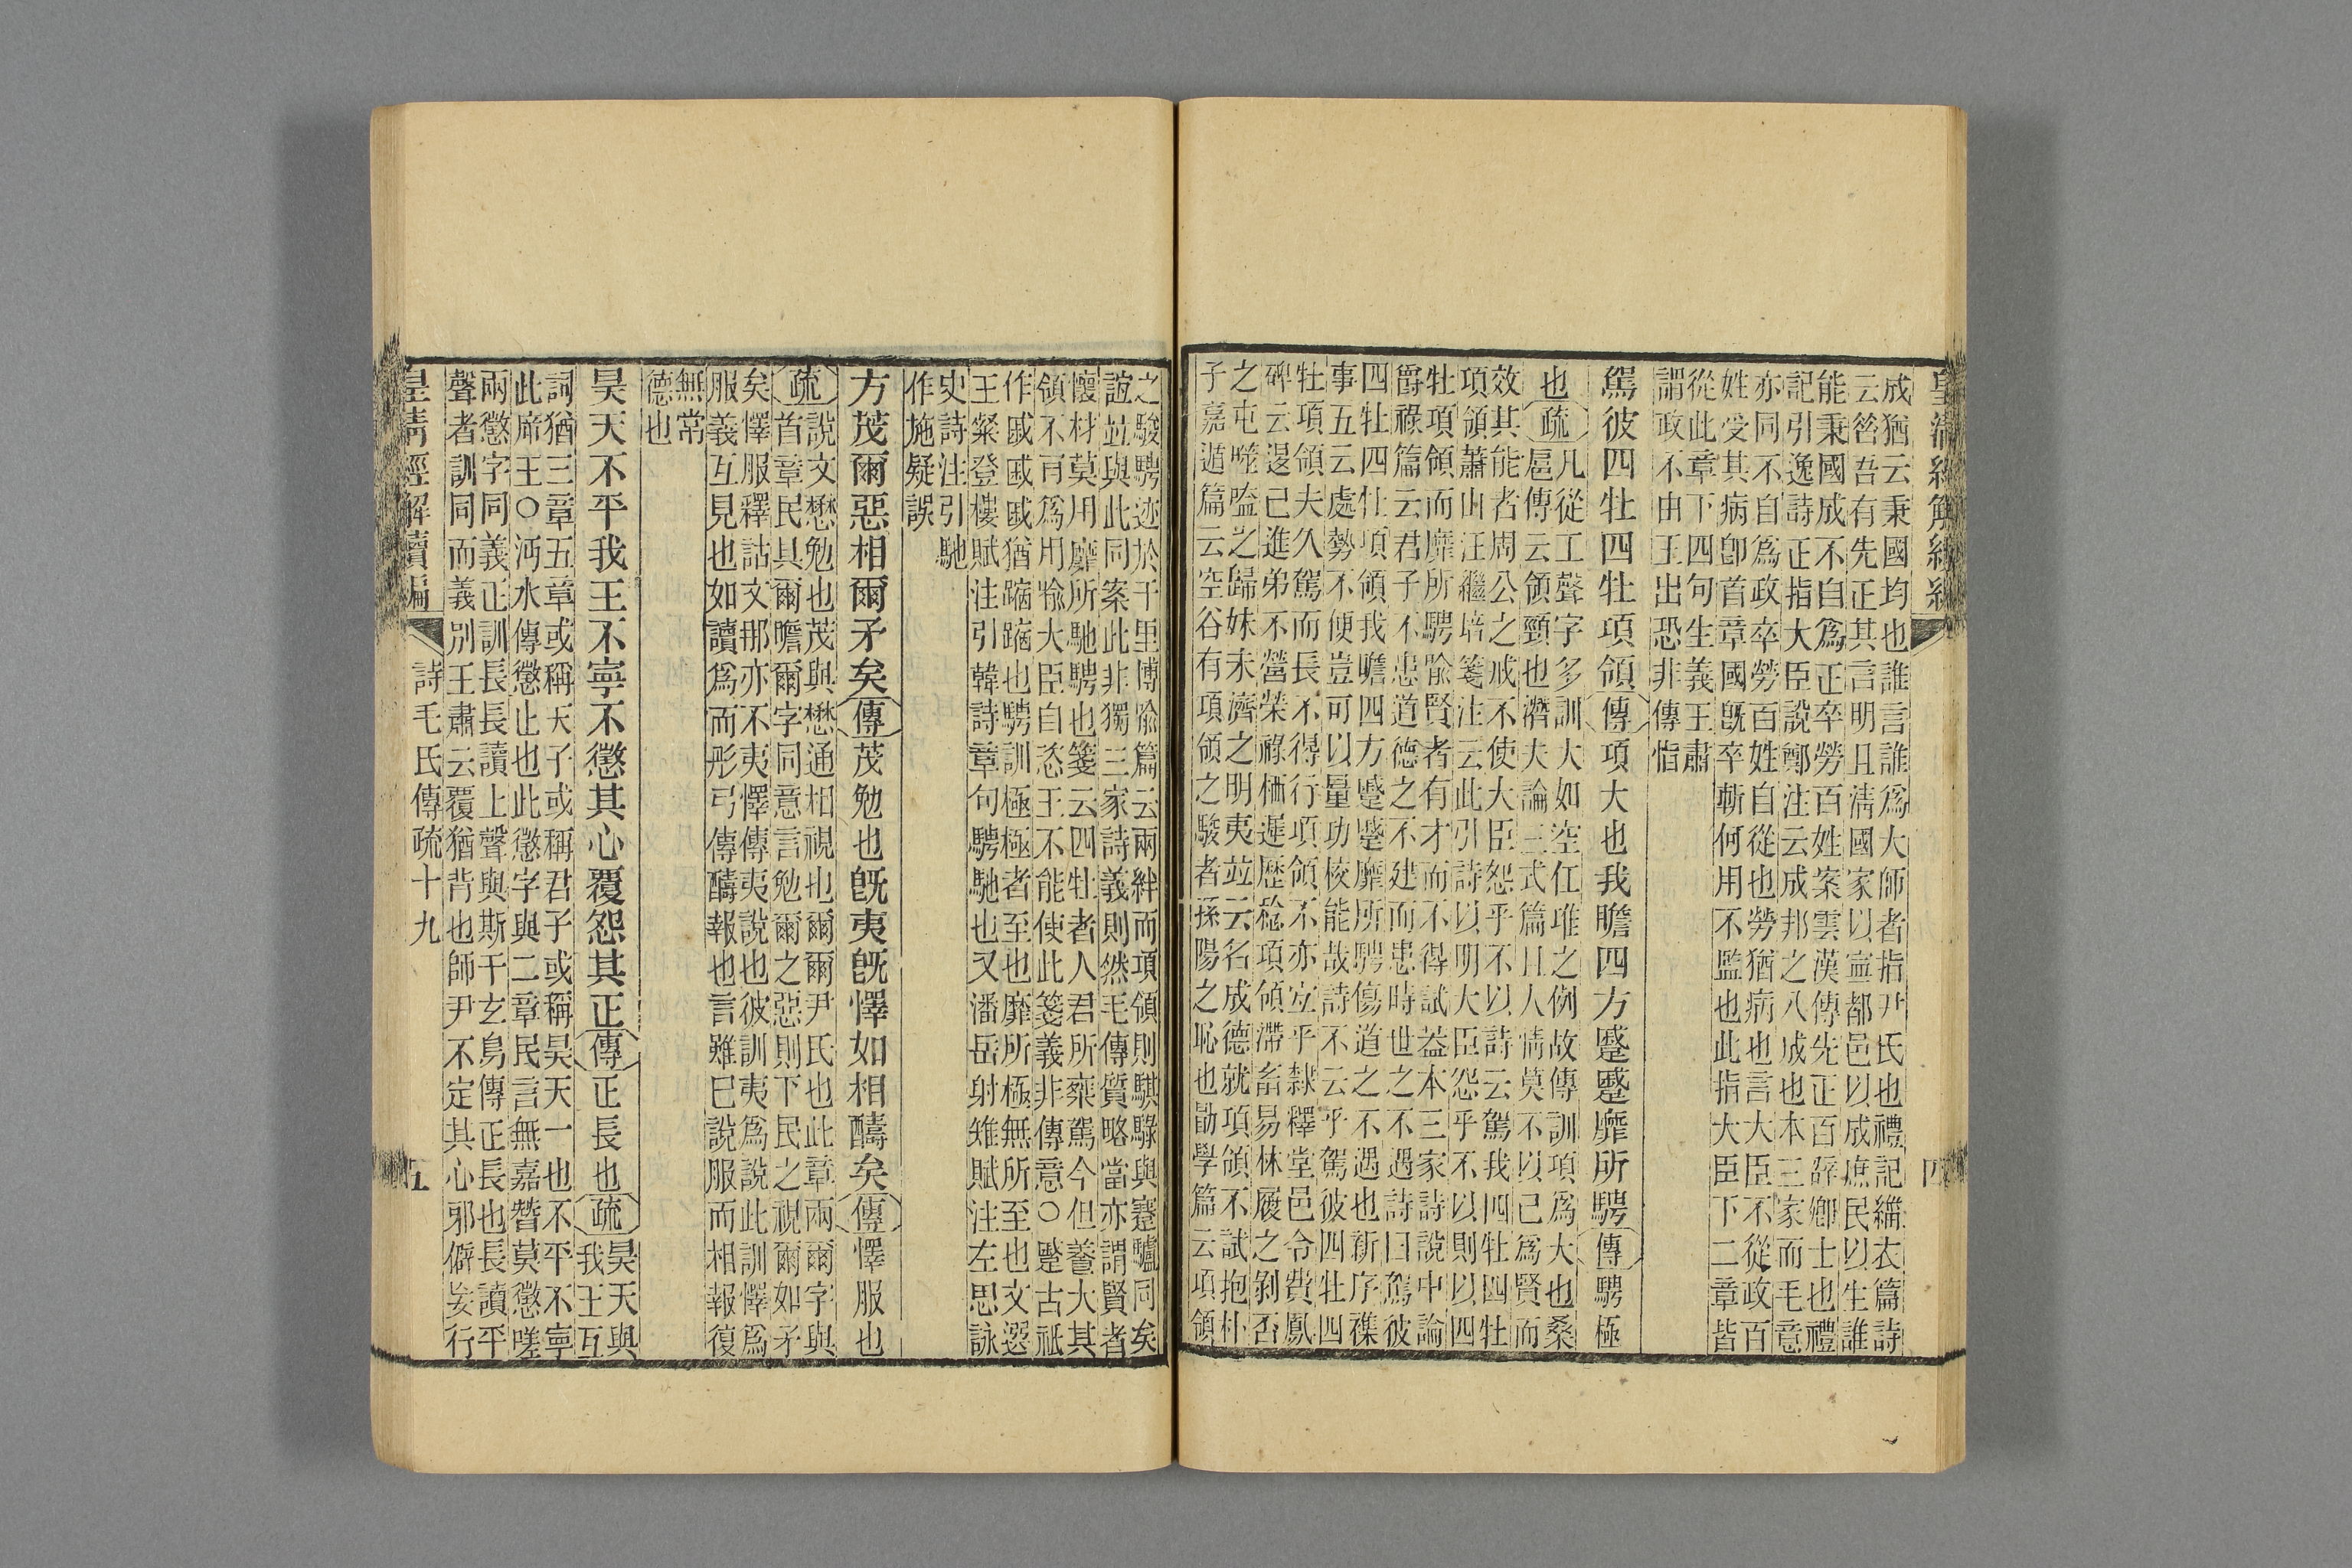 皇清經解續編　四
成猶云秉國均也誰言誰爲大師者指尹氏也禮記緇衣篇詩
云昝吾有先正其言明且清國家以寍都邑以成庶民以生誰
能秉國成不自爲正卒勞百姓案雲漢傳先正百辟卿士也禮
記引逸詩正指大臣說鄭注云成邦之八成也本三家而毛意
亦同不自爲政卒勞百姓自從也勞猶病也言大臣不從政百
姓受其病卽首章國旣卒斬何用不監也此指大臣下二章皆
從此章下四句生義王肅
謂政不由王出恐非傳恉
駕彼四牡四牡項領傳項大也我瞻四方蹙蹙靡所騁傳騁極
也疏凡從工聲字多訓大如空仜琟之例故傳訓項爲大也桑
扈傳云領頸也潛夫論三式篇且人情莫不以己爲賢而
效其能者周公之戒不使大臣怨乎不以詩云駕我四牡四牡
項領蕭山汪繼培箋注云此引詩以明大臣怨乎不以則以四
牡項領而靡所騁喩賢者有才而不得試葢本三家詩說中論
爵祿篇云君子不患道德之不建而患時世之不遇詩曰駕彼
四牡四牡項領我瞻四方蹙蹙靡所騁傷道之不遇也新序襍
事五云處勢不便豈可以量功校能哉詩不云乎駕彼四牡四
牡項領夫久駕而長不得行項領不亦宜乎隸釋堂邑令費鳳
碑云退己進弟不營榮祿栖遲歷稔項領滯畜易林履之剝否
之屯噬嗑之歸妹未濟之明夷竝云名成德就項領不試抱朴
子嘉遁篇云空谷有項領之駿者孫陽之恥也勖學篇云項領
之駿騁迹於千里博喩篇云兩絆而項領則騏騄與蹇驢同矣
誼竝與此同案此非獨三家詩義則然毛傳質略當亦謂賢者
懷材莫用靡所馳騁也箋云四牡者人君所乘駕今但養大其
領不肯爲用喩大臣自恣王不能使此箋義非傳意○蹙古祇
作戚戚猶蹐蹐也騁訓極極者至也靡所極無所至也文選
王粲登樓賦注引韓詩章句騁馳也又潘岳射雉賦注左思詠
史詩注引馳
作施疑誤
方茂爾惡相爾矛矣傳茂勉也旣夷旣懌如相醻矣傳懌服也
疏說文懋勉也茂與懋通相視也爾爾尹氏也此章兩爾字與
首章民具爾瞻爾字同意言勉爾之惡則下民之視爾如矛
矣懌服釋詁文那亦不夷懌傳夷說也彼訓夷爲說此訓懌爲
服義互見也如讀爲而彤弓傳醻報也言雖已說服而相報復
無常
德也
昊天不平我王不寧不懲其心覆怨其正傳正長也疏昊天與
我王互
詞猶三章五章或稱天子或稱君子或稱昊天一也不平不寧
此席王○沔水傳懲止也此懲字與二章民言無嘉朁莫懲嗟
兩懲字同義正訓長長讀上聲與斯干玄鳥傳正長也長讀平
聲者訓同而義別王肅云覆猶背也師尹不定其心邪僻妄行
皇清經解續編　詩毛氏傳疏十九　五